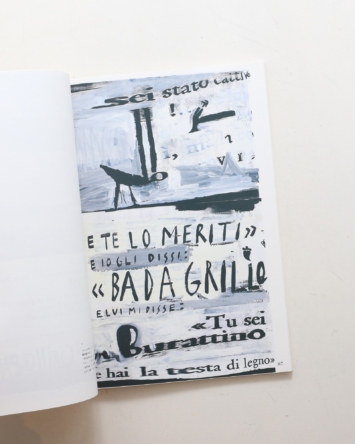 sei stato catti
!
E TE LO MERITI»
E IO GLI DISSI:
«BADA GRILLO
E LUI MI DISSE:
«Tu sei
Burattino
e hai la testa di legno»